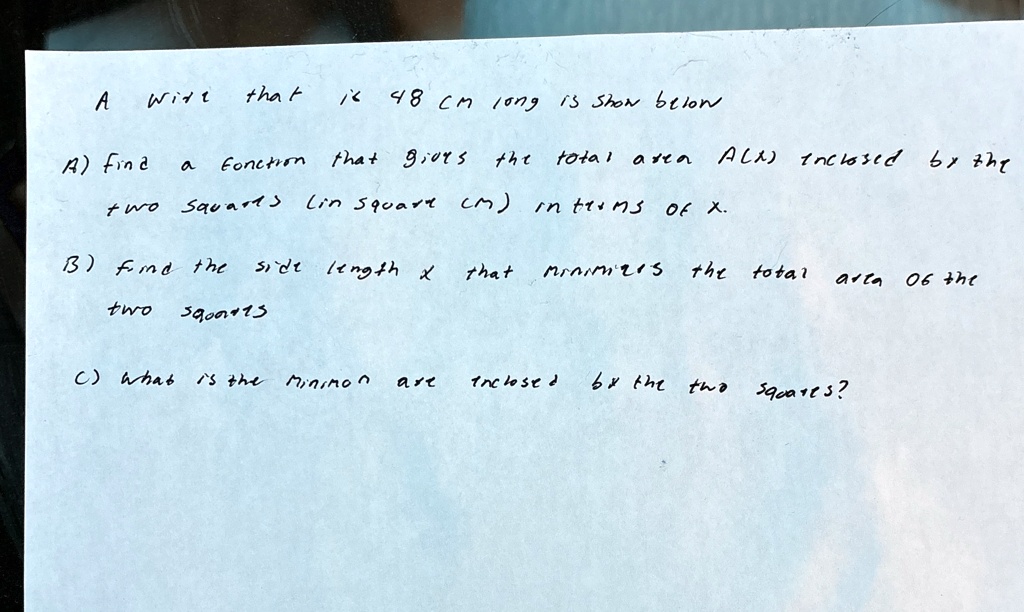 A wire that is 48 cm long is show below
A) find a fonction that gives the total area A(x) enclosed by the
two squares (in square cm) in terms of x.
B) find the side length x that minimizes the total area of the
two squares
C) what is the minimon are enclosed by the two squares?